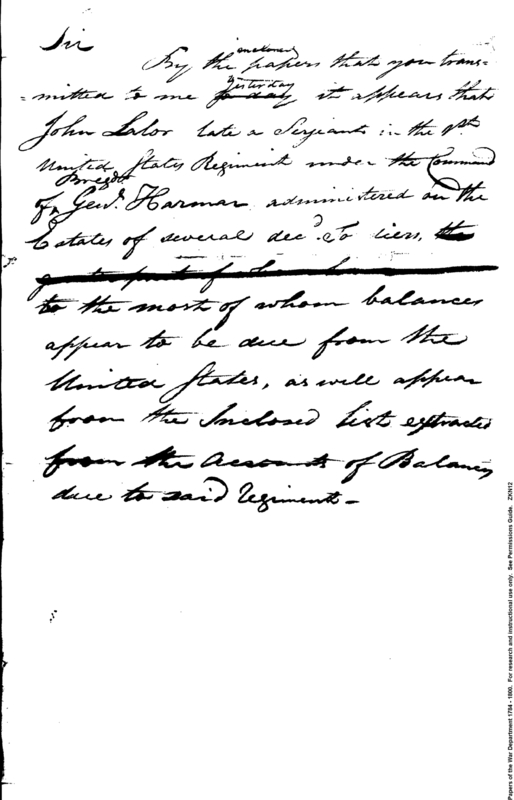 Sir
By the enclosed papers that you trans=
=mitted to me yesterday to day it appears that
John Lalor late a Serjeant in the 1st
United States Regiment under the Command
of Brigdr Genl. Harmar administered on the
Estates of several decd. Soldiers, the
to the most of whom balances
appear to be due from the
United States, as will appear
from the Inclosed list extracted
from the Accounts of Balances
due to said Regiment -
Papers of the War Department 1784 - 1800. For research and instructional use only. See Permissions Guide. ZXN12